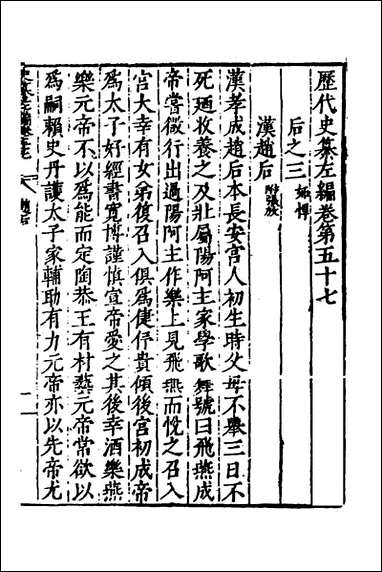 歷代史纂左編卷第五十七
后之三 嫉悍
漢趙后 附張放
漢孝成趙后本長安宮人初生時父母不舉三日不
死廼收養之及壯屬陽阿主家學歌舞號曰飛燕成
帝嘗微行出過陽阿主作樂上見飛燕而悅之召入
宮大幸有女弟復召入俱爲倢伃貴傾後宮初成帝
爲太子好經書寬博謹慎宣帝愛之其後幸酒樂燕
樂元帝不以爲能而定陶恭王有材藝元帝常欲以
爲嗣賴史丹護太子家輔助有力元帝亦以先帝尤